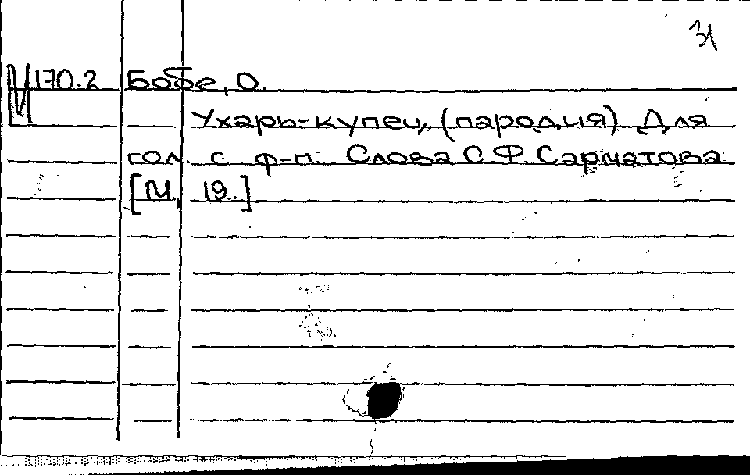 31
М170.2 Бобе, О.
Ухарь-купец, (пародия) Для
гол. с ф-п. Слова С.Ф. Сарматова
[М., 19.]